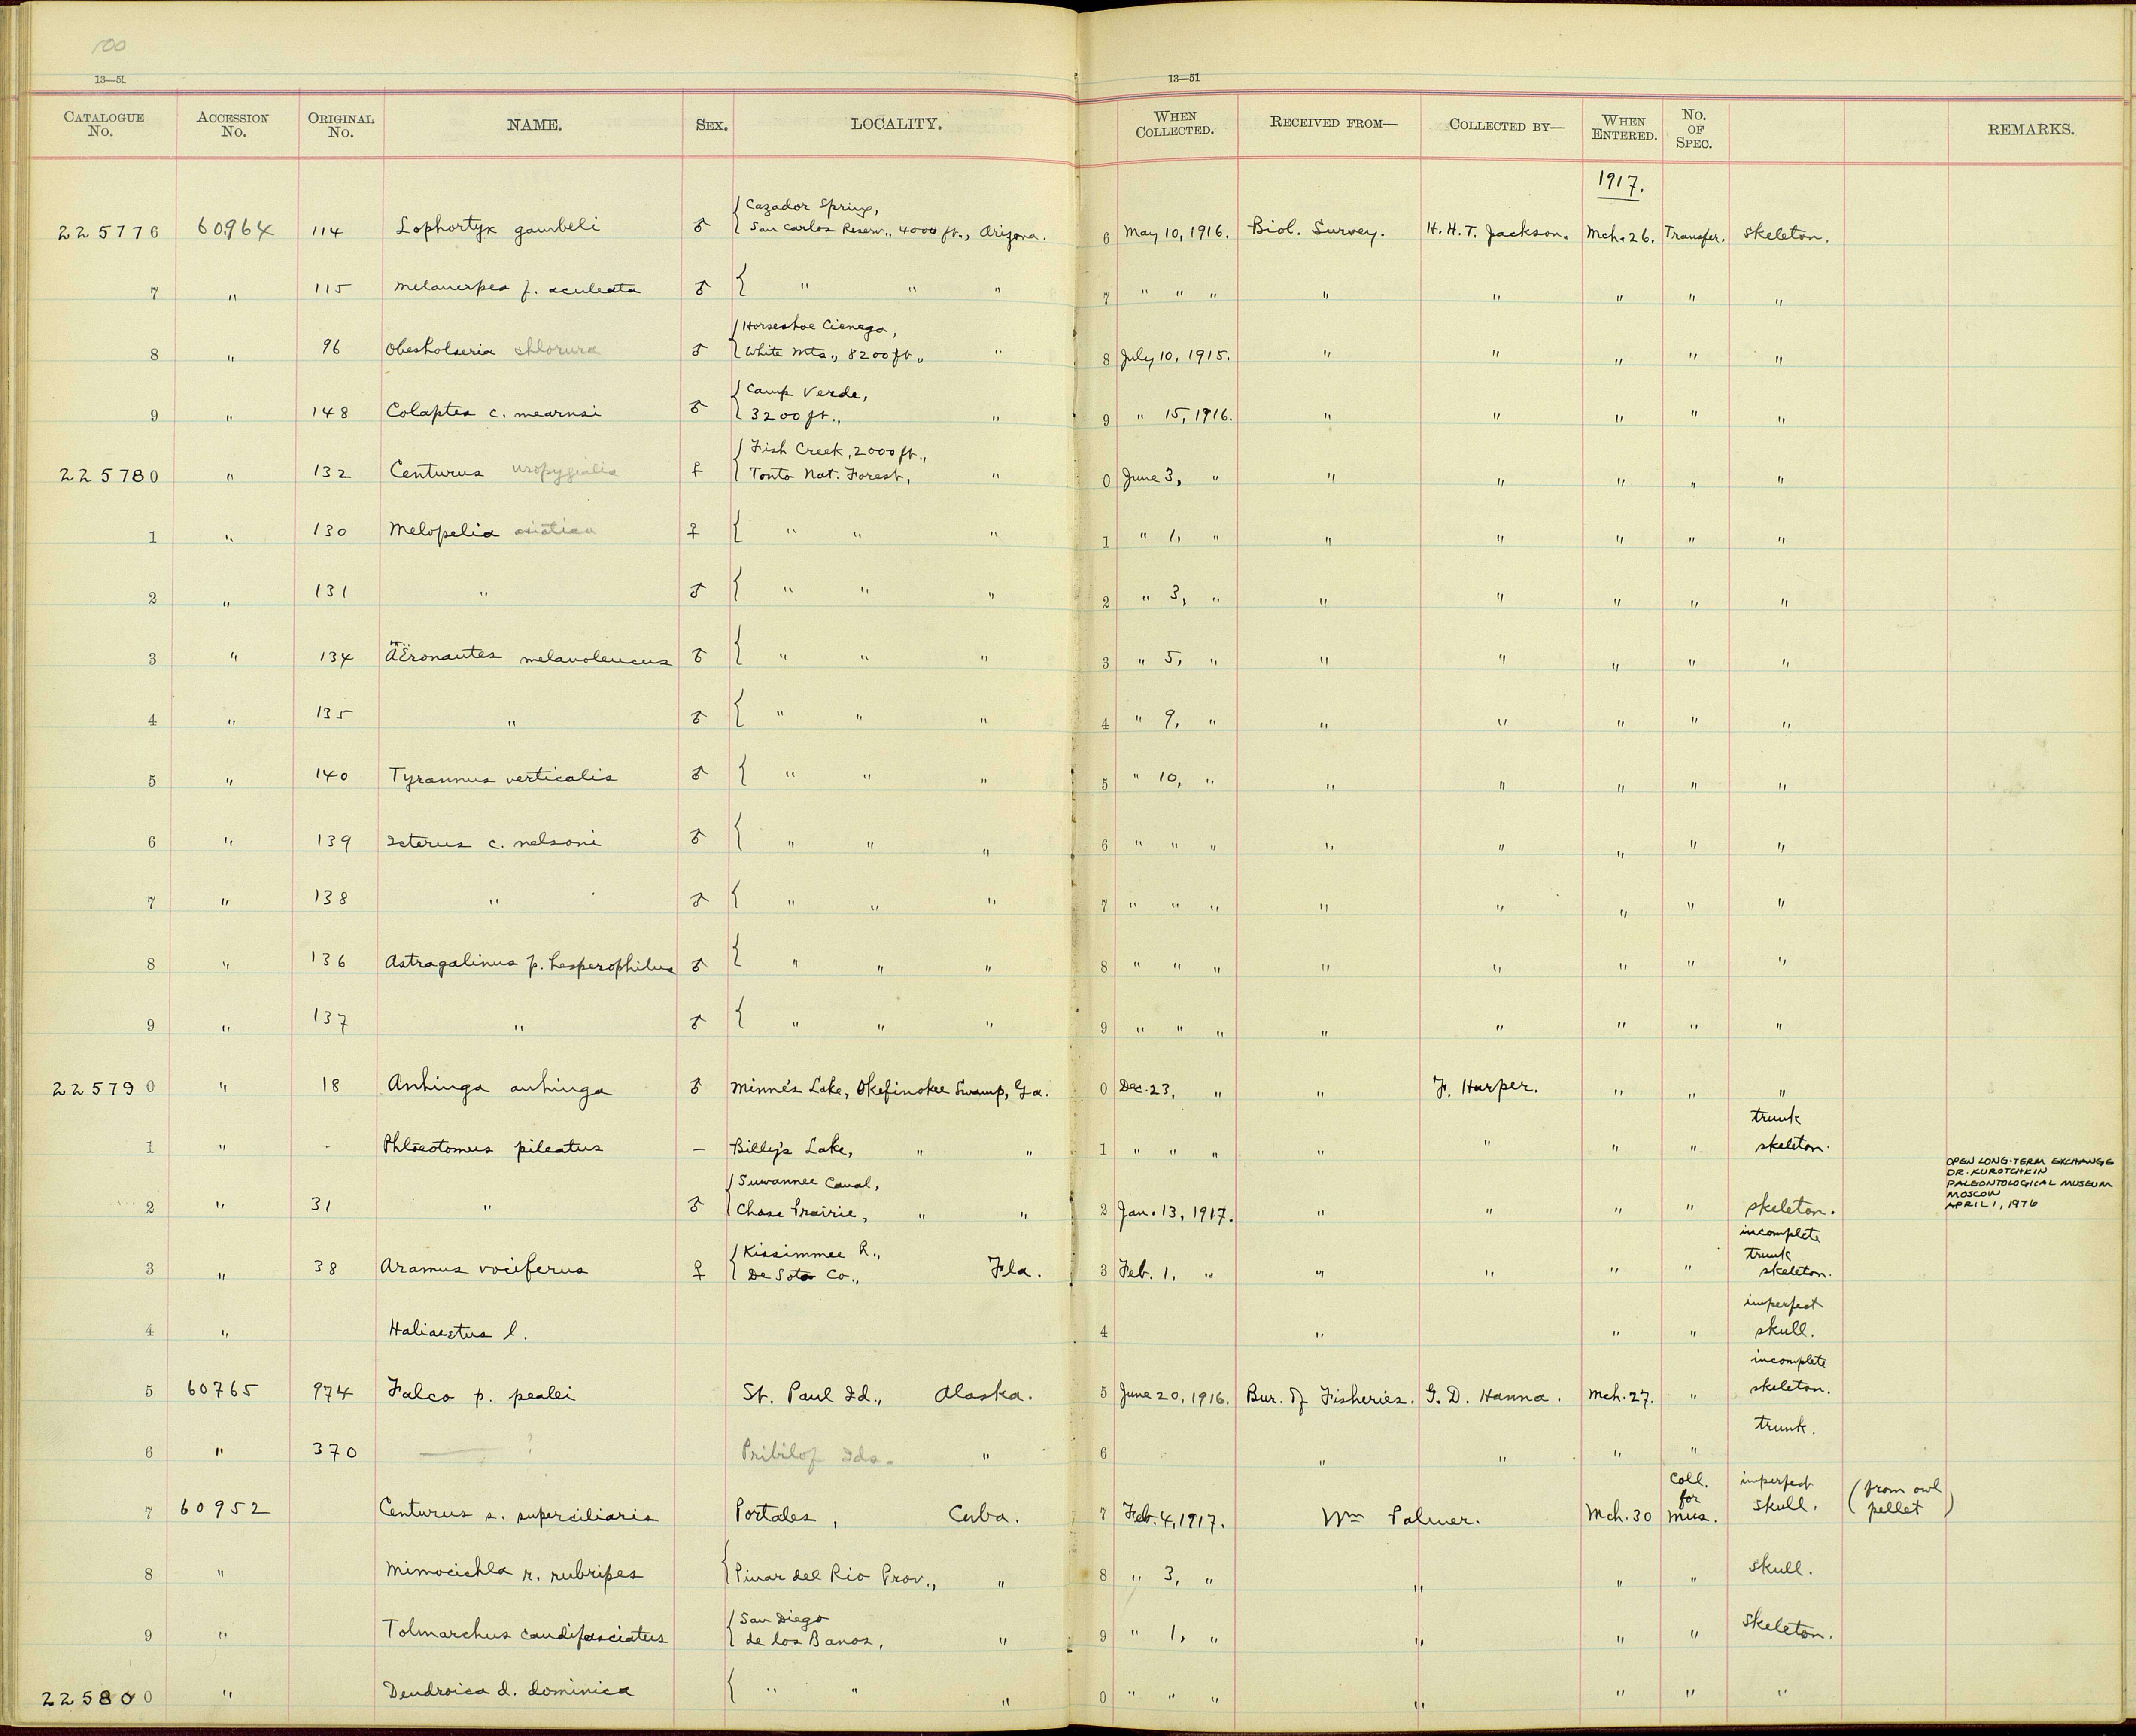 100
13—51 13—51
CATALOGUE No. ACCESSION No. ORIGINAL No. NAME. SEX. LOCALITY. WHEN COLLECTED. RECEIVED FROM— COLLECTED BY— WHEN ENTERED. No. OF SPEC. REMARKS.
1917.
Cazador Spring,
225776 60964 114 Lophortyx gambeli ♂ San Carlos Reserv., 4000 ft., Arizona. 6 May 10, 1916. Biol. Survey. H. H. T. Jackson. Mch. 26. Transfer. Skeleton.
7 " 115 Melanerpes f. aculeata ♂ " " " 7 " " " " " " " "
Horseshoe Cienega,
8 " 96 Oberholseria chlorura ♂ White Mts., 8200 ft., " 8 July 10, 1915. " " " " "
Camp Verde,
9 " 148 Colaptes c. mearnsi ♂ 3200 ft., " 9 " 15, 1916. " " " " "
Fish Creek, 2000 ft.,
225780 " 132 Centurus uropygialis ♀ Tonto Nat. Forest, " 0 June 3, " " " " " "
1 " 130 Melopelia asiatica ♀ " " " 1 " 1, " " " " " "
2 " 131 " ♂ " " " 2 " 3, " " " " " "
3 " 134 Aëronautes melanoleucus ♂ " " " 3 " 5, " " " " " "
4 " 135 " ♂ " " " 4 " 9, " " " " " "
5 " 140 Tyrannus verticalis ♂ " " " 5 " 10, " " " " " "
6 " 139 Icterus c. nelsoni ♂ " " " 6 " " " " " " " "
7 " 138 " ♂ " " " 7 " " " " " " " "
8 " 136 Astragalinus p. hesperophilus ♂ " " " 8 " " " " " " " "
9 " 137 " ♂ " " " 9 " " " " " " " "
225790 " 18 Anhinga anhinga ♂ Minne's Lake, Okefinokee Swamp, Ga. 0 Dec. 23, " " F. Harper. " " "
trunk
1 " - Phlœotomus pileatus – Billy's Lake, " " 1 " " " " " " " skeleton.
OPEN LONG-TERM EXCHANGE
DR. KUROTCHKIN
PALEONTOLOGICAL MUSEUM
MOSCOW
APRIL 1, 1976
Suwannee Canal,
2 " 31 " ♂ Chase Prairie, " " 2 Jan. 13, 1917. " " " " skeleton.
incomplete
Kissimmee R., trunk
3 " 38 Aramus vociferus ♀ De Soto Co., Fla. 3 Feb. 1, " " " " " skeleton.
imperfect
4 " Haliaeetus l. 4 " " " skull.
incomplete
5 60765 974 Falco p. pealei St. Paul Id., Alaska. 5 June 20, 1916. Bur. of Fisheries. G. D. Hanna. Mch. 27. " skeleton.
trunk.
6 " 370 —— ? Pribilof Ids. " 6 " " " "
Coll. for Mus. imperfect
7 60952 Centurus s. superciliaris Portales, Cuba. 7 Feb. 4, 1917. Wm Palmer. Mch. 30 skull. (from owl pellet)
8 " Mimocichla r. rubripes Pinar del Rio Prov., " 8 " 3, " " " " skull.
San Diego
9 " Tolmarchus caudifasciatus de los Banos, " 9 " 1, " " " " Skeleton.
225800 " Dendroica d. dominica " " " 0 " " " " " " "